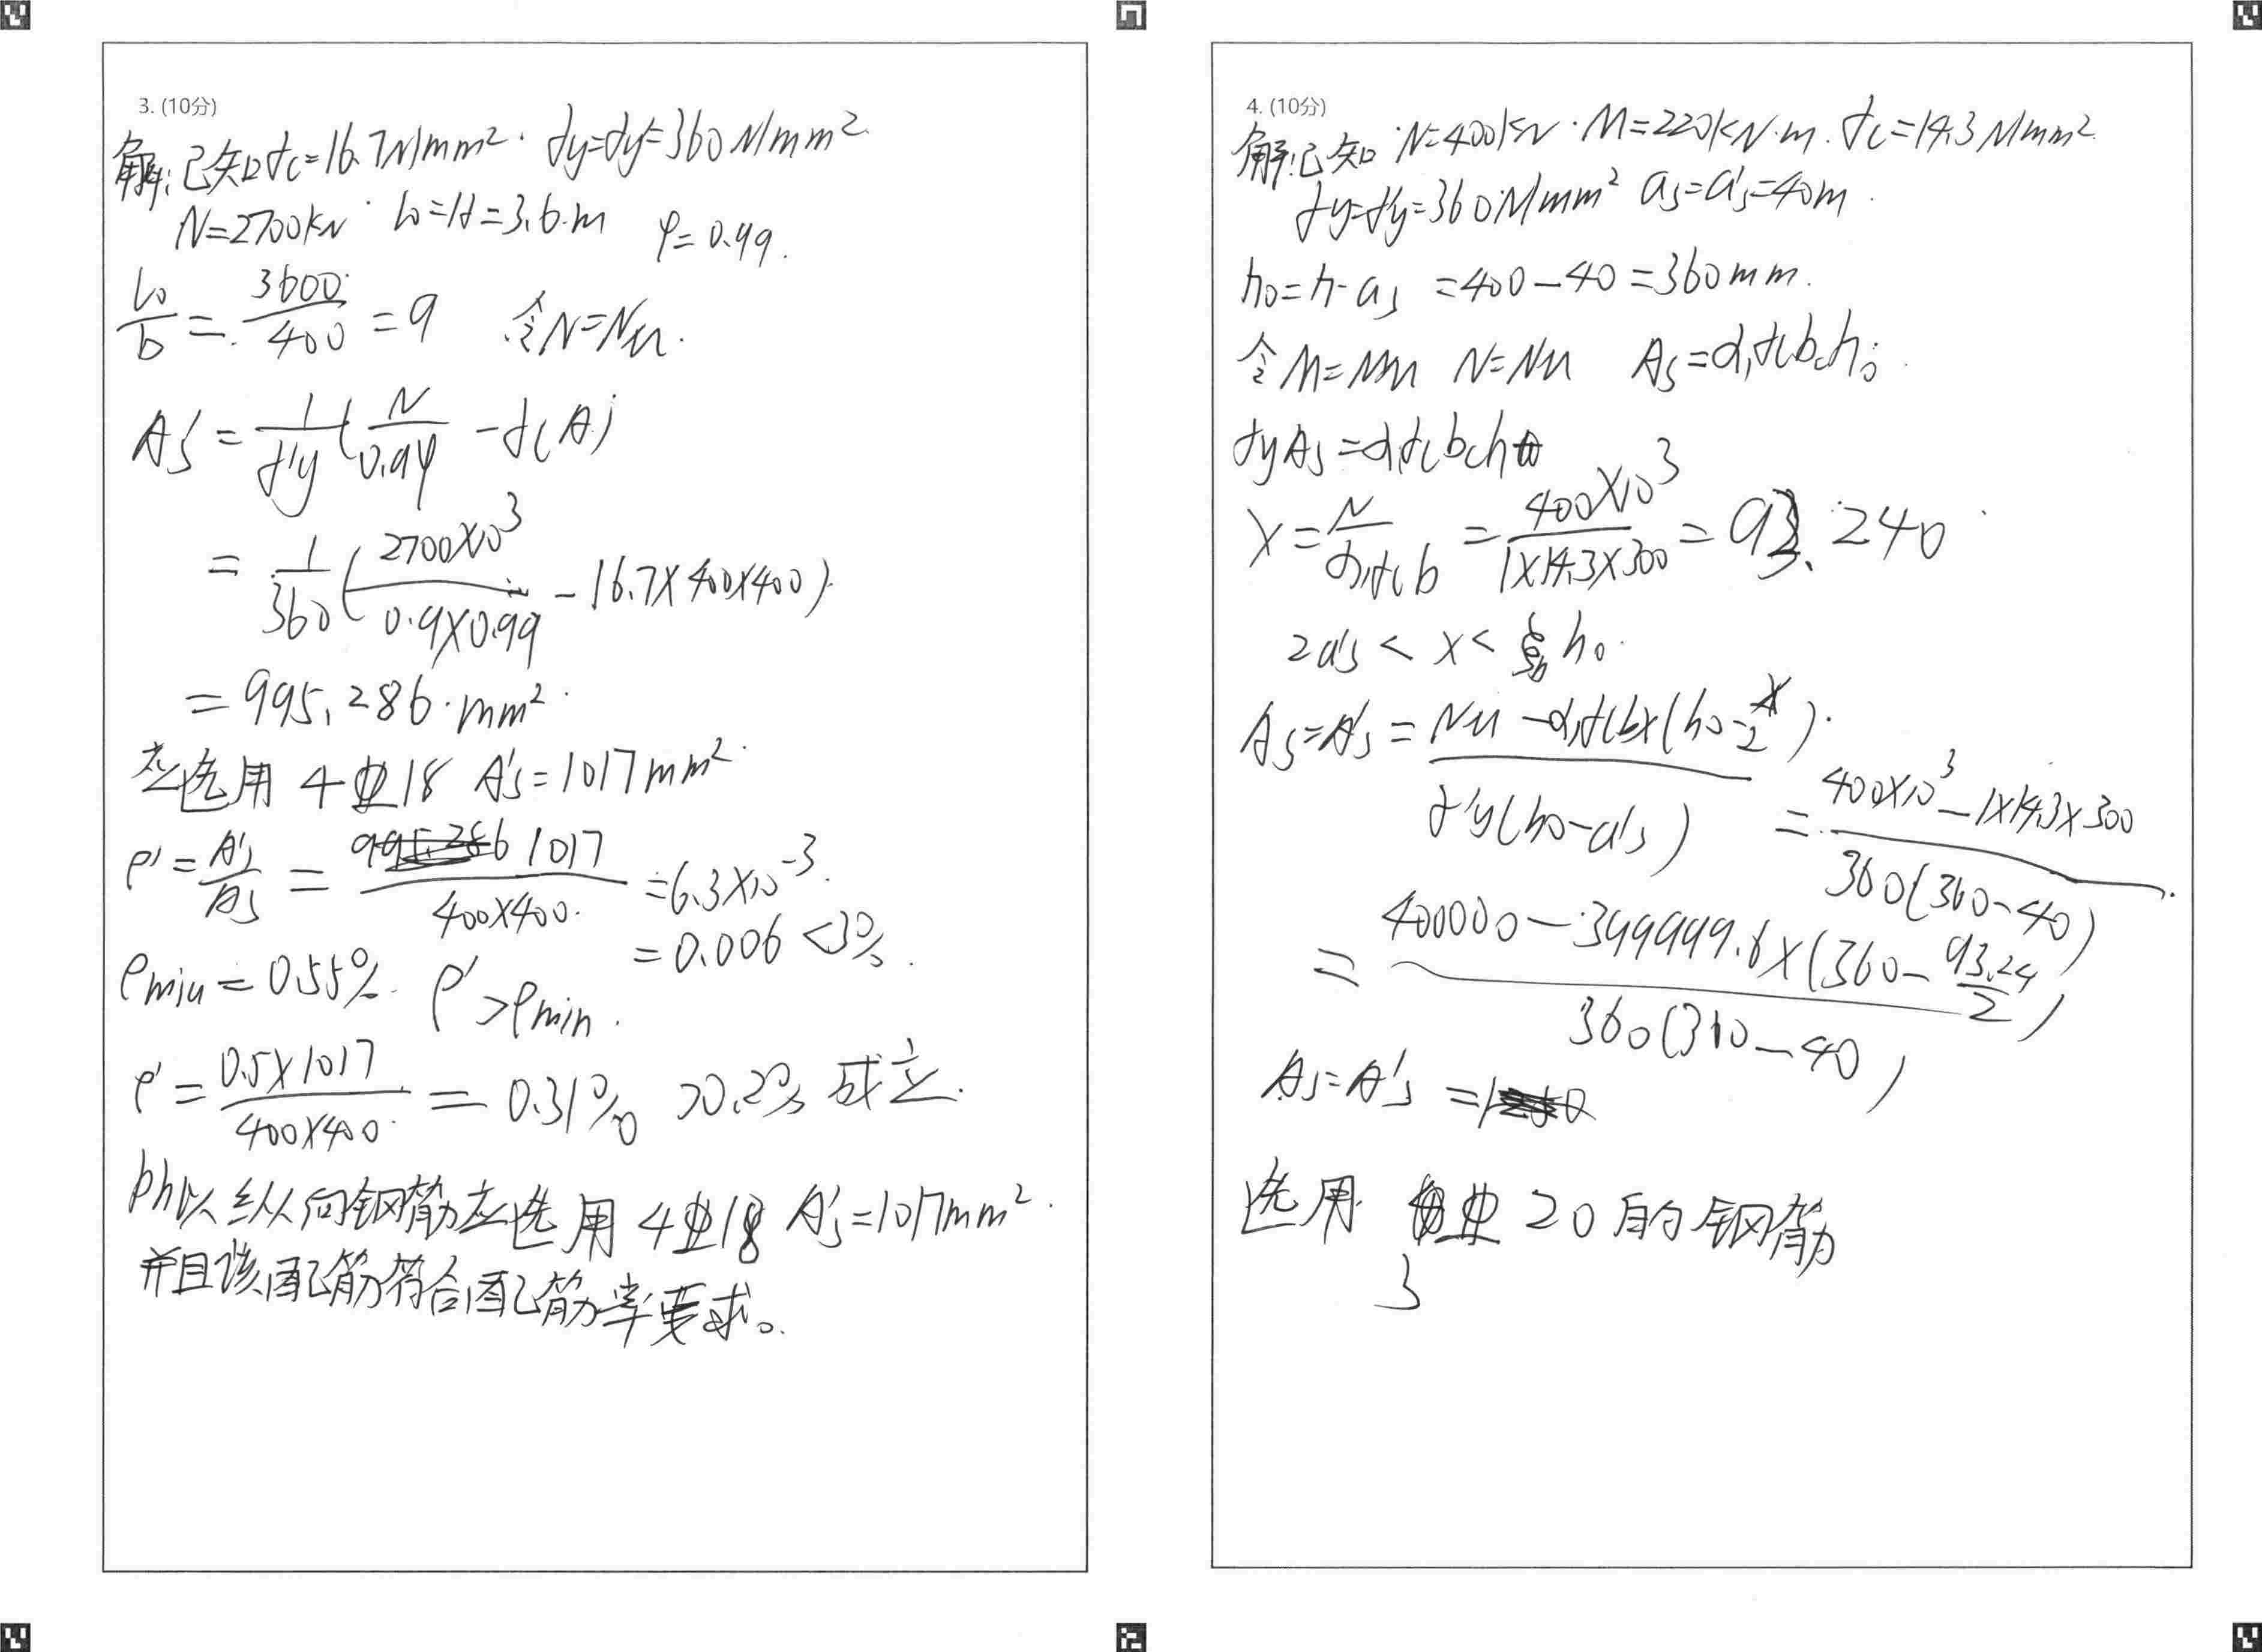 3. (10分)
解:已知fc=16.7N/mm². fy=fy'=360N/mm².
N=2700kN. l0=H=3.6.m φ=0.99.
l0/b=3600/400=9 令N=Nu.
A's=1/f'y(N/0.9φ-fcA)
=1/360(2700×10³/0.9×0.99-16.7×400×400)
=995.286.mm².
应选用4⌀18 A's=1017mm².
ρ'=A's/As=1017/400×400.=6.3×10⁻³.
=0.006<3%.
ρmin=0.55%. ρ'>ρmin.
ρ'=0.5×1017/400×400.=0.31%>0.2%成立.
所以纵向钢筋应选用4⌀18 A's=1017mm².
并且该配筋符合配筋率要求。
4. (10分)
解:已知 N=400kN.M=220kN.m.fc=14.3N/mm².
fy=f'y=360N/mm² as=a's=40m.
h0=h-as=400-40=360mm.
令M=Mu N=Nu As=α1fcbch0.
fyAs=α1fcbch
x=N/α1fcb=400×10³/1×14.3×300=93.240
2a's<x<ξbh0.
As=A's=Nu-α1fcbx(h0-x/2)/f'y(h0-a's)=400×10³-1×14.3×300/360(360-40)
=400000-399999.6×(360-93.24/2)/360(360-40)
As=A's=
选用 3⌀20的钢筋